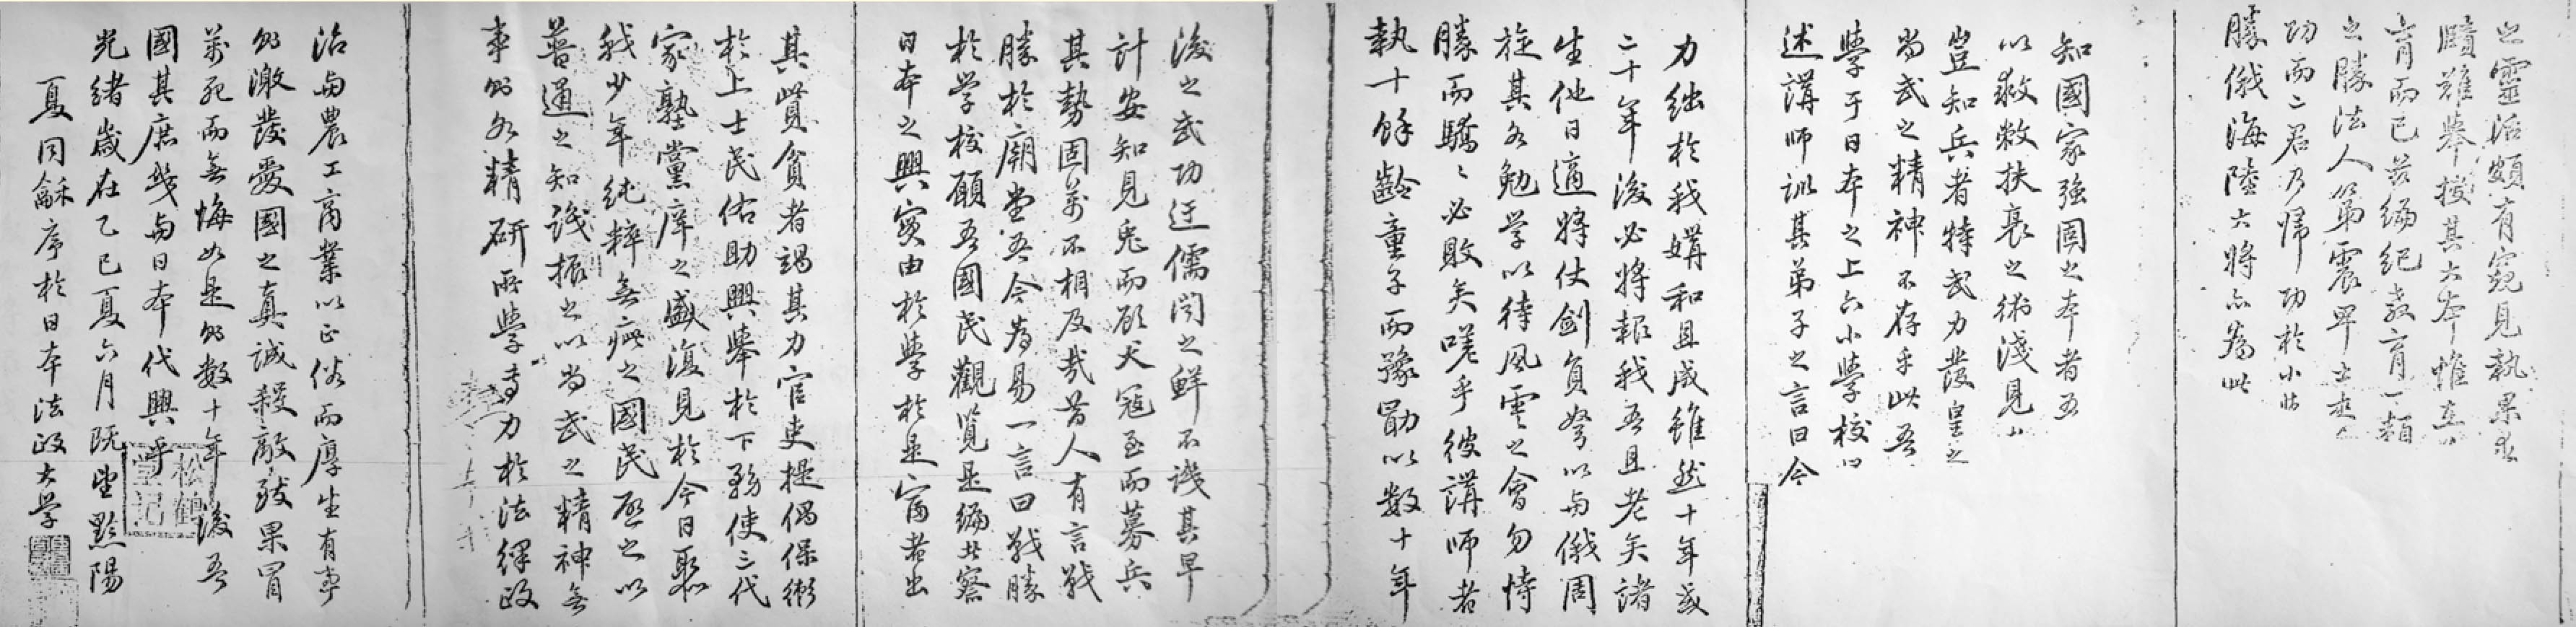 之靈活頗有窺見執果求
賾難舉撥其大本惟在
育而已若編紀教育一類
之勝法人第震畢士麥
功而二君乃歸功於小
勝俄海陸大將亦為此
知國家強固之本者五
以救敝扶衰之術淺見
豈知兵者特武力發皇之
尚武之精神不存乎此吾
學于日本之上六小學校
述講師訓其弟子之言曰今
力絀於我媾和且成雖然十年或
二十年後必將報我吾且老矣諸
生他日適將仗劍負弩以與俄周
旋其各勉學以待風雲之會勿恃
勝而驕驕必敗矣嗟乎彼講師者
執十餘齡童子而豫勗以數十年
後之武功迂儒聞之鮮不譏其早
計安知見兔而顧犬寇至而募兵
其勢固萬不相及哉昔人有言戰
勝於廟堂吾今為易一言曰戰勝
於學校願吾國民觀覽是編共察
日本之興實由於學於是富者出
其貲貧者竭其力官吏提倡保衛
於上士民佑助興舉於下務使三代
家塾黨庠之盛復見於今日聚
我少年純粹無疵之國民延之以
普通之知識振之以尚武之精神無
事則各精研所學專力於法律政
治與農工商業以正俗而厚生有事
則激發愛國之真誠殺敵致果冒
萬死而無悔如是則數十年後吾
國其庶幾與日本代興乎
光緒歲在乙巳夏六月既望黟陽
夏同龢序於日本法政大學
松鶴